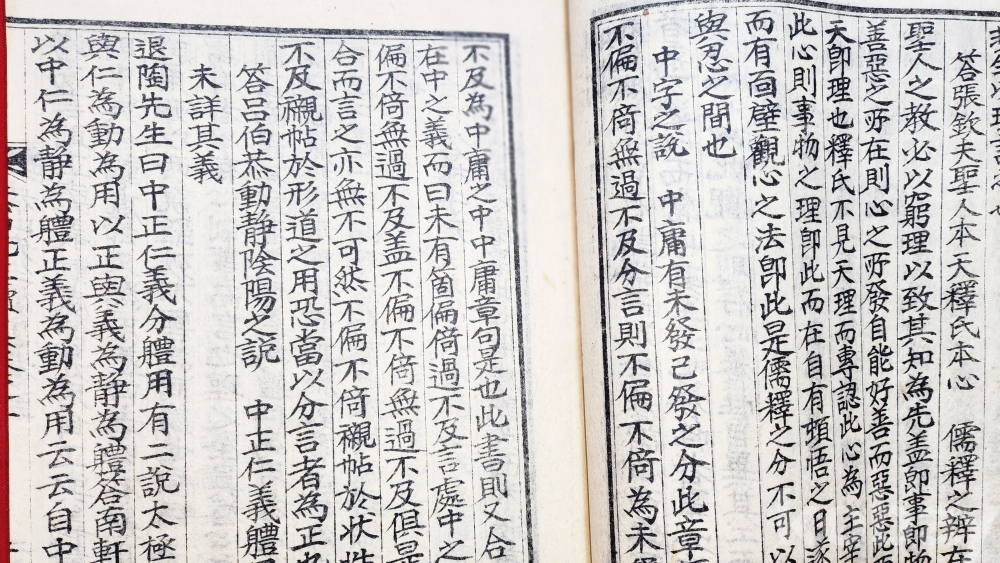 答張欽夫聖人本天釋氏本心 儒釋之辨在
聖人之教必以窮理以致其知為先盖即事即物
善惡之所在則心之所發自能好善而惡惡此
天即理也釋氏不見天理而專認此心為主宰
此心則事物之理即此而在自有頓悟之日遂
而有面壁觀心之法即此是儒釋之分不可以
與忍之間也
中字之說 中庸有未發已發之分此章
不偏不倚無過不及分言則不偏不倚為未
不及為中庸之中中庸章句是也此書則又合
在中之義而曰未有箇偏倚過不及言處中之
偏不倚無過不及盖不偏不倚無過不及俱是
合而言之亦無不可然不偏不倚襯帖於狀性
不及襯帖於形道之用恐當以分言者為正也
答呂伯恭動静陰陽之說 中正仁義體
未詳其義
退陶先生曰中正仁義分體用有二說太極
與仁為動為用以正與義為静為體答南軒
以中仁為静為體正義為動為用云云自中